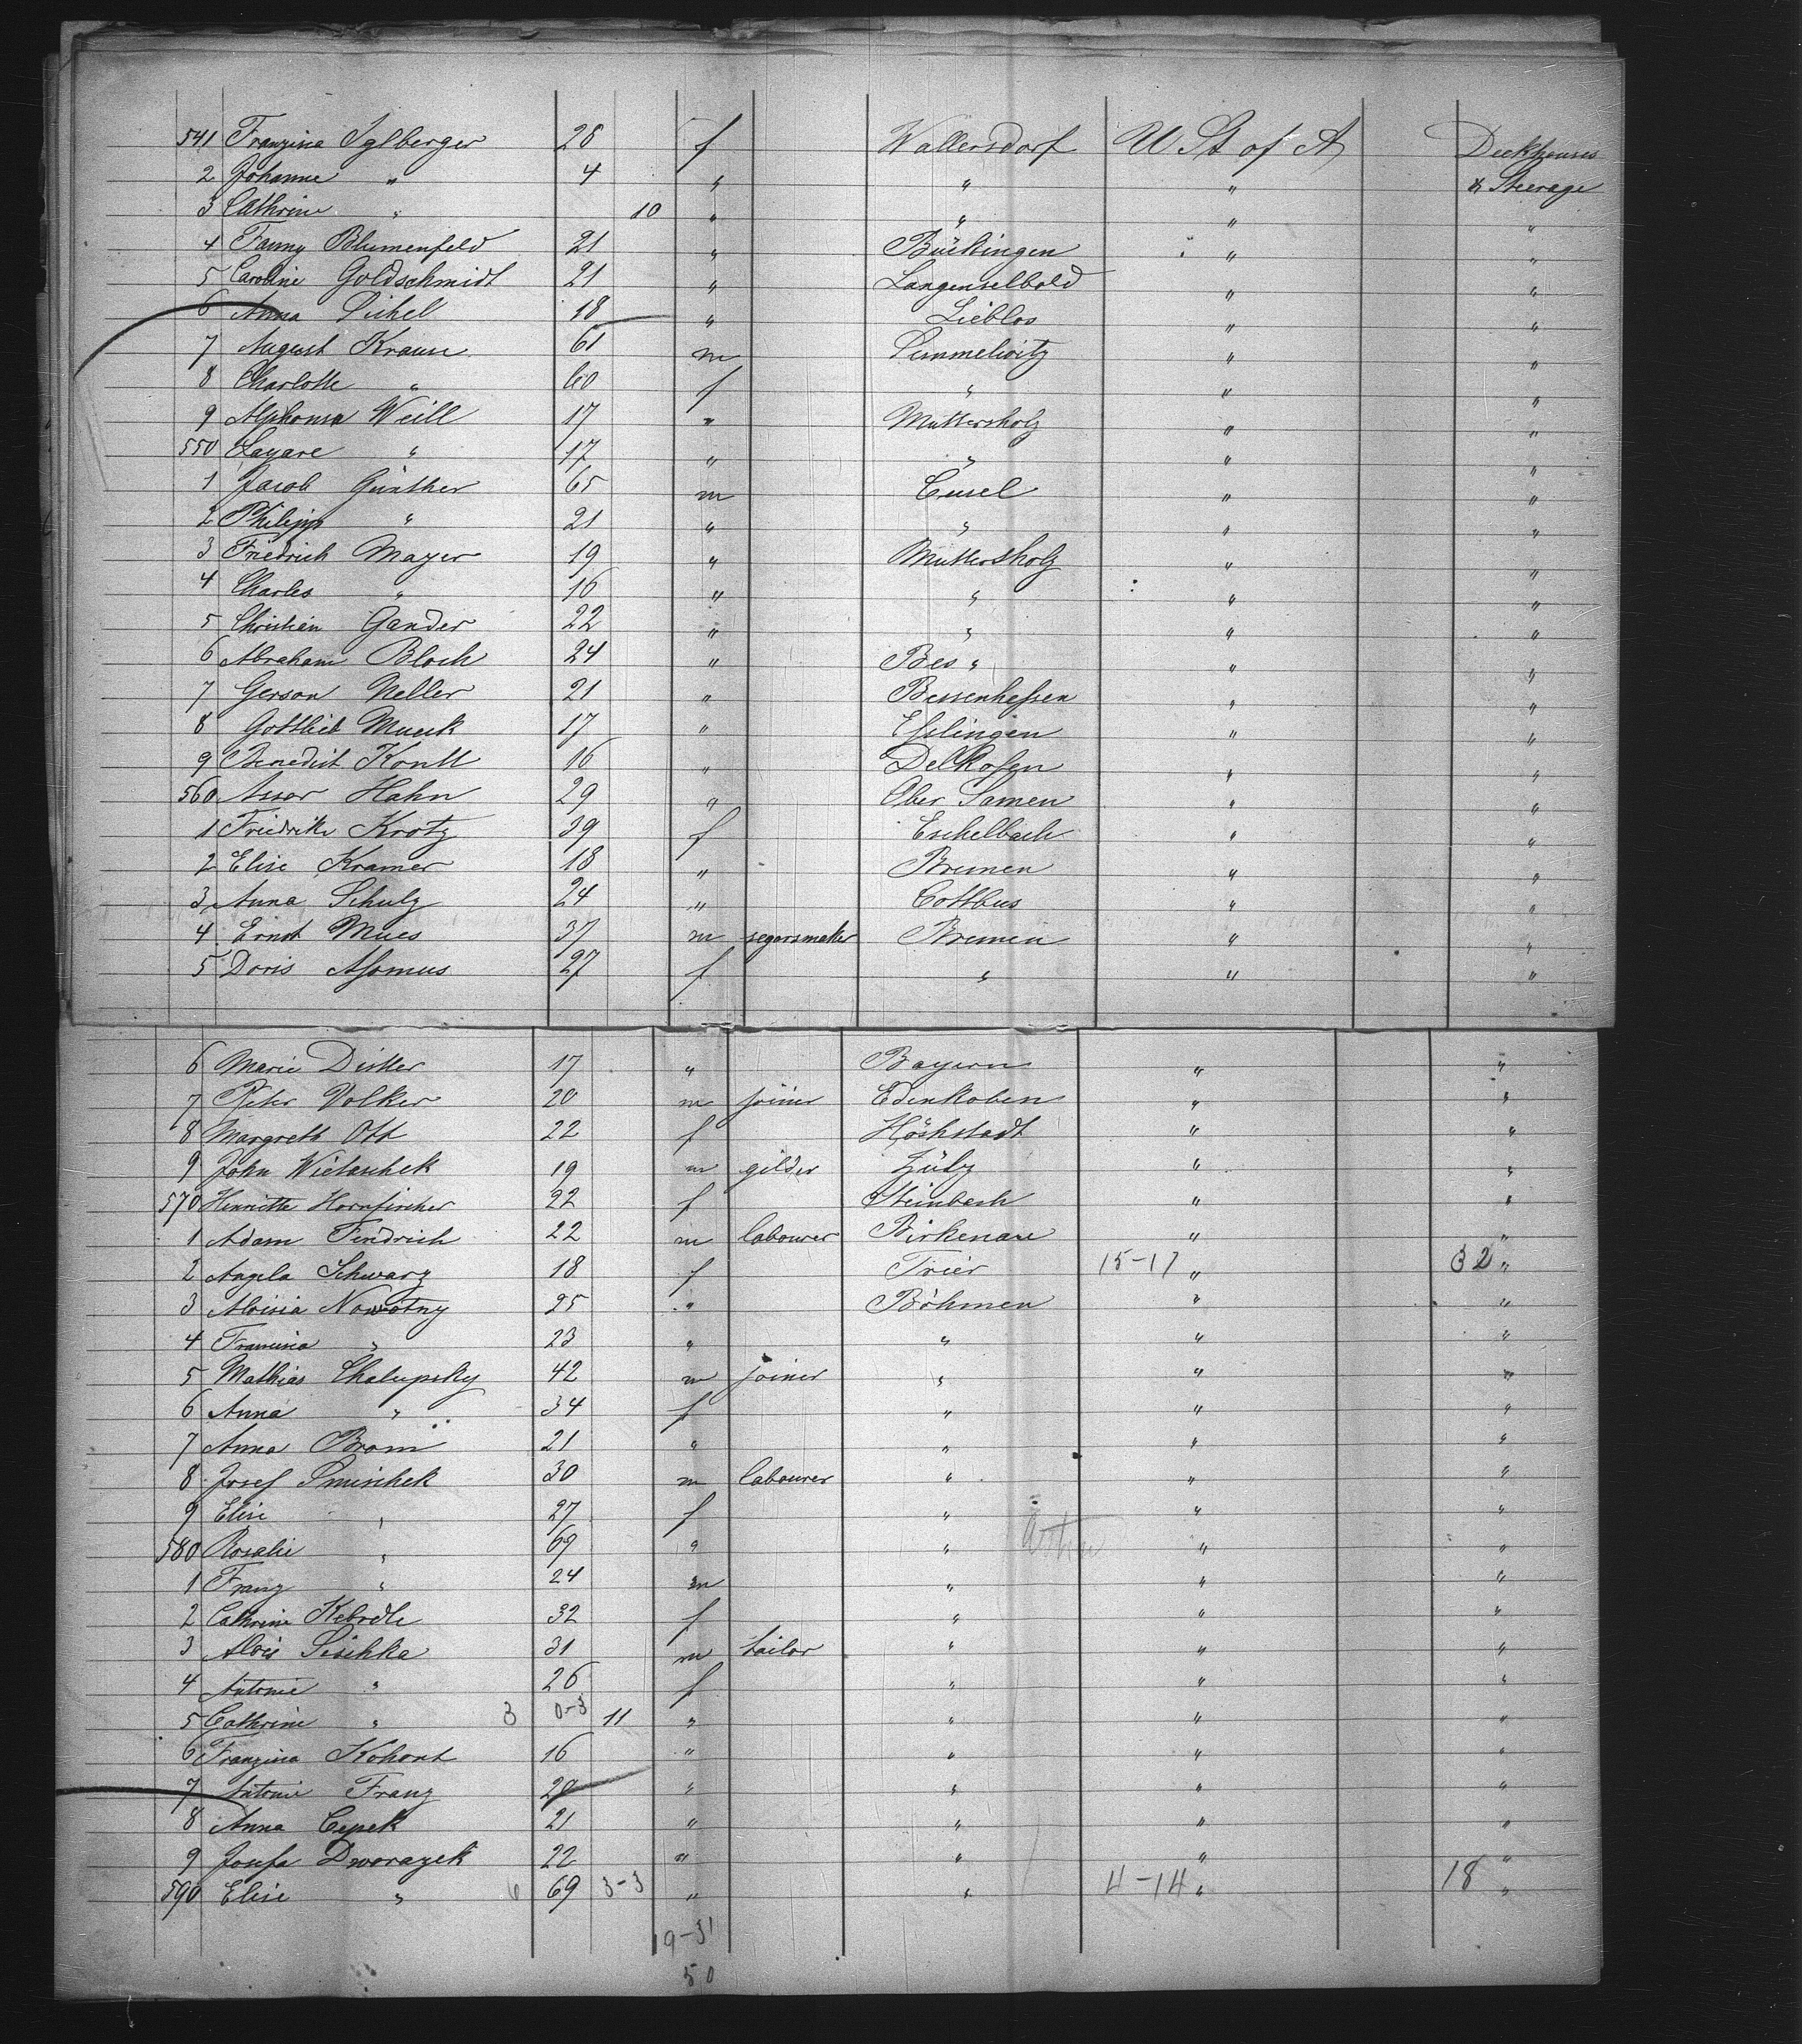 541 Franzina Iglberger 28 f Wallersdorf U St of A Deckhouses
2 Johanne " 4 " " " & Steerage
3 Cathrine " 10 " " " "
4 Fanny Blumenfeld 21 " Büdingen " "
5 Caroline Goldschmidt 21 " Langenselbold " "
6 Anna Pichel 18 " Lieblos " "
7 August Krause 61 m "  "
8 Charlotte " 60 f " " "
9 Alphonsa Weill 17 " Muttersholz " "
550 Lazare " 17 " " " "
1 Jacob Günther 65 m Cusel " "
2 Philipp " 21 " " " "
3 Friedrich Mayer 19 " Muttersholz " "
4 Charles " 16 " " " "
5 Christien Gander 22 " " " "
6 Abraham Bloch 24 " " "
7 Gerson Neller 21 " " "
8 Gottlieb Mueck 17 " Eßlingen " "
9 Benedict 16 " Delkofen " "
560 Hahn 29 " Ober " "
1 Friedrike Krotz 39 f Eschelbach " "
2 Elise Kramer 18 " Bremen " "
3 Anna Schulz 24 " Cottbus " "
4 Ernst Mues 37 m segarsmaker Bremen " "
5 Doris Aßmus 27 f " " "
6 Marie 17 " Bayern " "
7 Peter Volker 20 m joiner Edenkoben " "
8 Margreth Ott 22 f Höchstadt " "
9 John Wietaschek 19 m gilder Zülz " "
570 Henriette Hornfischer 22 f Steinbach " "
1 Adam Fendrich 22 m labourer Birkenau " "
2 Angela Schwarz 18 f Trier 15-17 " 32 "
3 Aloisia Nowotny 25 " Böhmen " "
4 Francisca " 23 " " " "
5 Mathias Chalupsky 42 m joiner " " "
6 Anna " 34 f " " "
7 Anna Brom 21 " " " "
8 Josef Smischek 30 m labourer " " "
9 Elise " 27 f " " "
580 Rosalie " 69 " " " "
1 Franz " 24 m " " "
2 Cathrine 32 f " " "
3 Alois Sischka 31 m tailor " " "
4 Antonie " 26 f " " "
5 Cathrine " 3 0-3 11 " " " "
6 Franzina Kohout 16 " " " "
7 Antonie Franz 20 " " " "
8 Anna Cepek 21 " " " "
9 Josefa Dworazek 22 " " " "
590 Elise " 6 69 3-3 " " 4-14 " 18 "
19-31
50